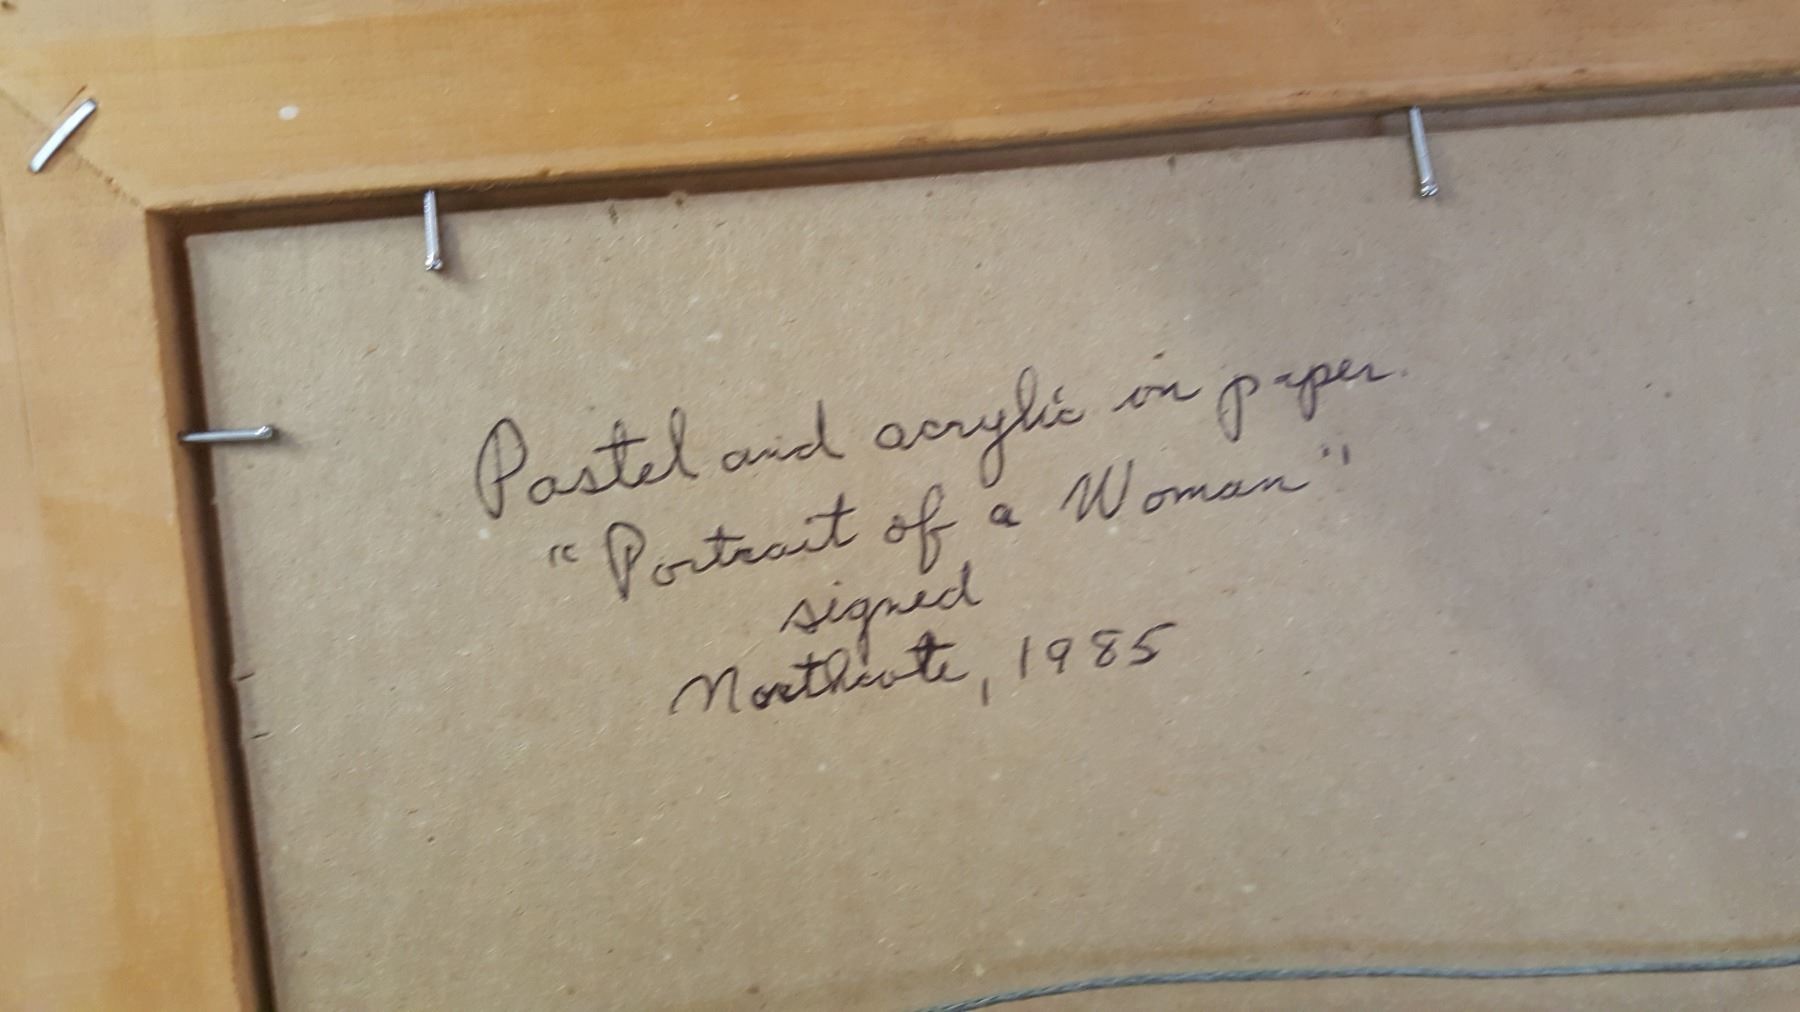 Pastel and acrylic on paper.
"Portrait of a Woman"
signed
Northcote, 1985